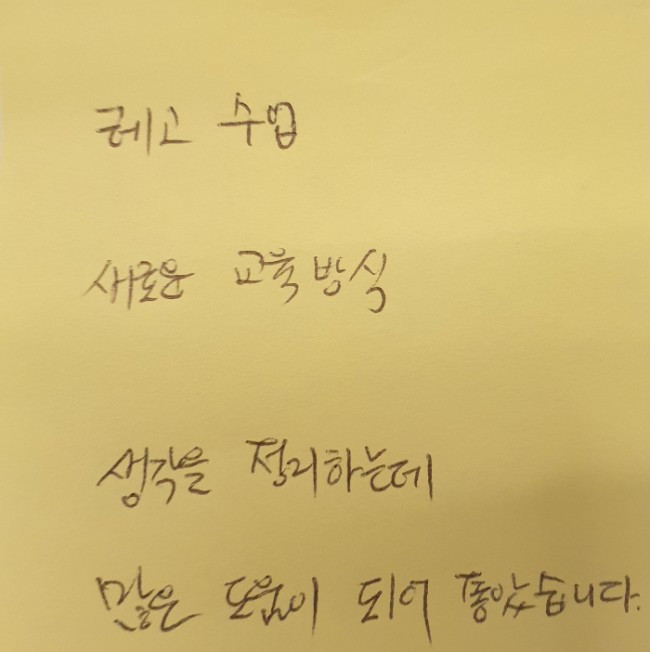 레고 수업
새로운 교육방식
생각을 정리하는데
많은 도움이 되어 좋았습니다.